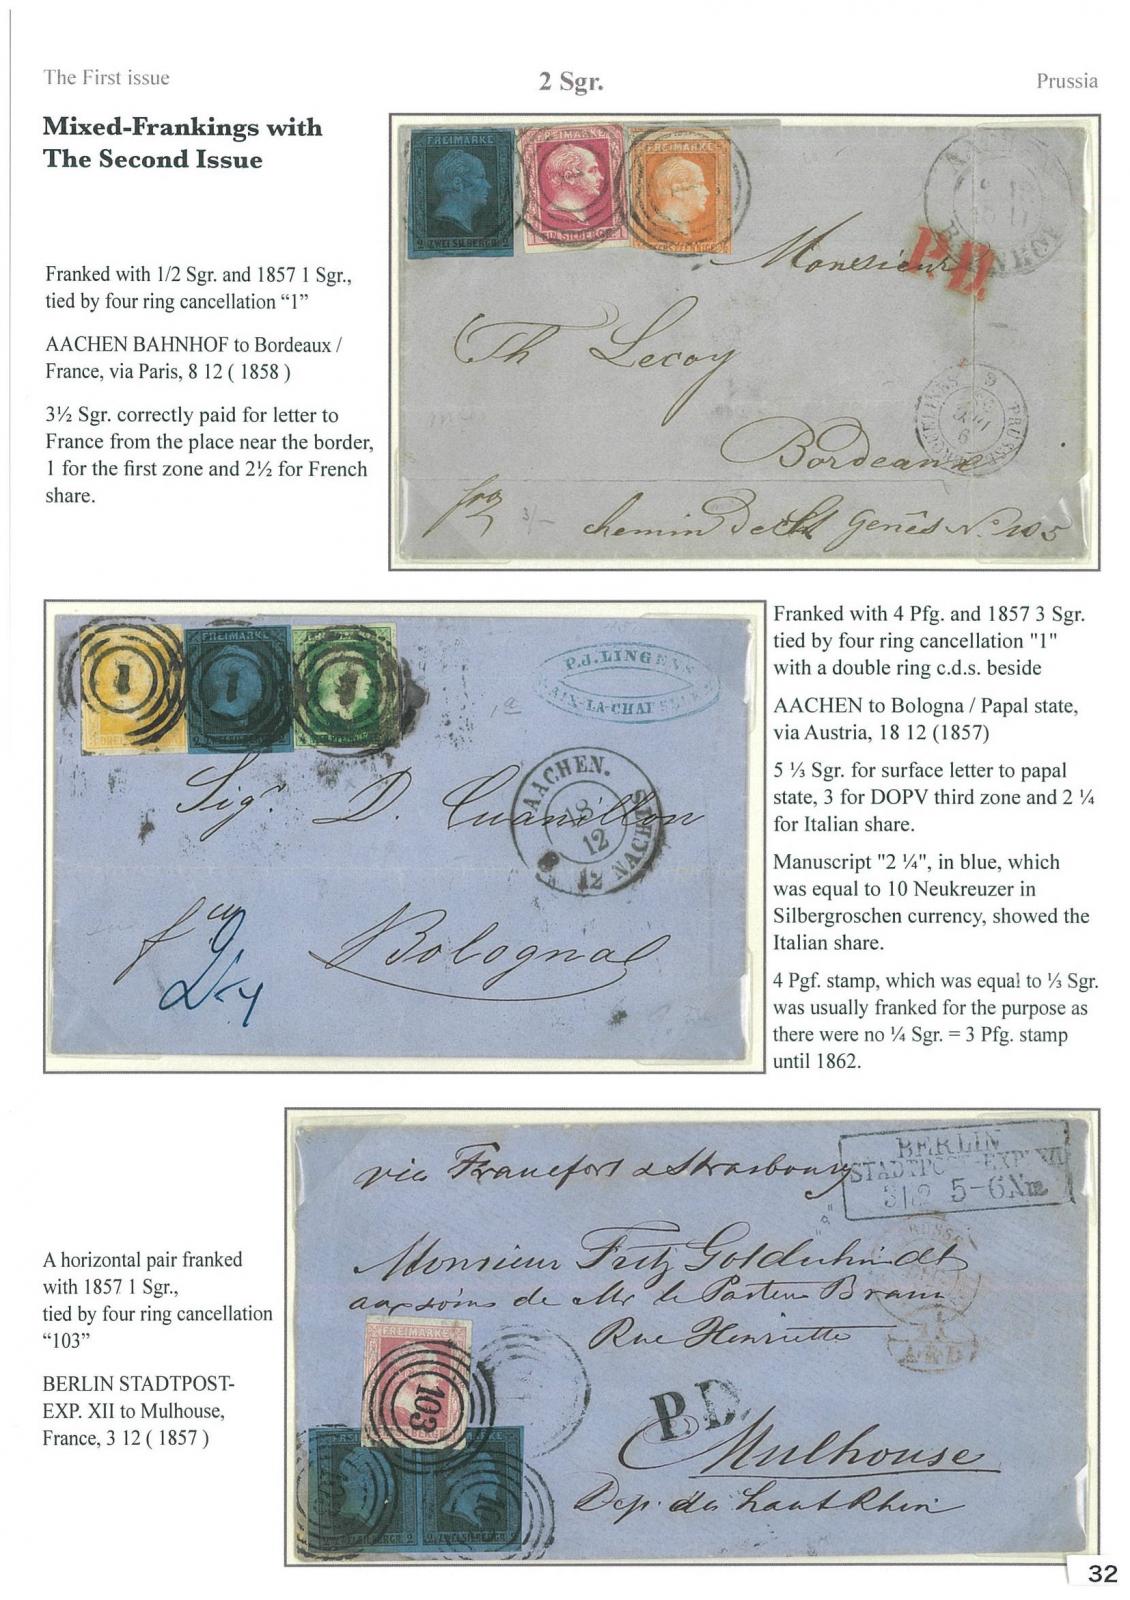 The First issue
2 Sgr.
Prussia
Mixed-Frankings with
The Second Issue
Franked with 1/2 Sgr. and 1857 1 Sgr.,
tied by four ring cancellation “1”
AACHEN BAHNHOF to Bordeaux /
France, via Paris, 8 12 ( 1858 )
3½ Sgr. correctly paid for letter to
France from the place near the border,
1 for the first zone and 2½ for French
share.
FREIMARKE
2 ZWEI SILBERGR. 2
FREIMARKE
1 EIN SILBERGR. 1
FREIMARKE
P.D.
Monsieur
Th Lecoy
Bordeaux
PRUSSE
chemin de St Genès No 105
Franked with 4 Pfg. and 1857 3 Sgr.
tied by four ring cancellation "1"
with a double ring c.d.s. beside
AACHEN to Bologna / Papal state,
via Austria, 18 12 (1857)
5 ⅓ Sgr. for surface letter to papal
state, 3 for DOPV third zone and 2 ¼
for Italian share.
Manuscript "2 ¼", in blue, which
was equal to 10 Neukreuzer in
Silbergroschen currency, showed the
Italian share.
4 Pgf. stamp, which was equal to ⅓ Sgr.
was usually franked for the purpose as
there were no ¼ Sgr. = 3 Pfg. stamp
until 1862.
FREIMARKE
1 1 1
P.J.LINGENS
AIX-LA-CHAPELLE
AACHEN.
18
12
12 NACHM
Sig. D.
Bologna
A horizontal pair franked
with 1857 1 Sgr.,
tied by four ring cancellation
“103”
BERLIN STADTPOST-
EXP. XII to Mulhouse,
France, 3 12 ( 1857 )
via Francfort & Strasbourg
BERLIN
STADTPOST-EXP. XII
3 12 5-6 Nm
Monsieur Fritz Goldschmidt
aux soins de Mr le Pasteur Braun
Rue Henriette
FREIMARKE
103
P.D.
Mulhouse
Dep. du haut Rhin
FREIMARKE
2 ZWEI SILBERGR. 2
2 ZWEI SILBERGR. 2
32